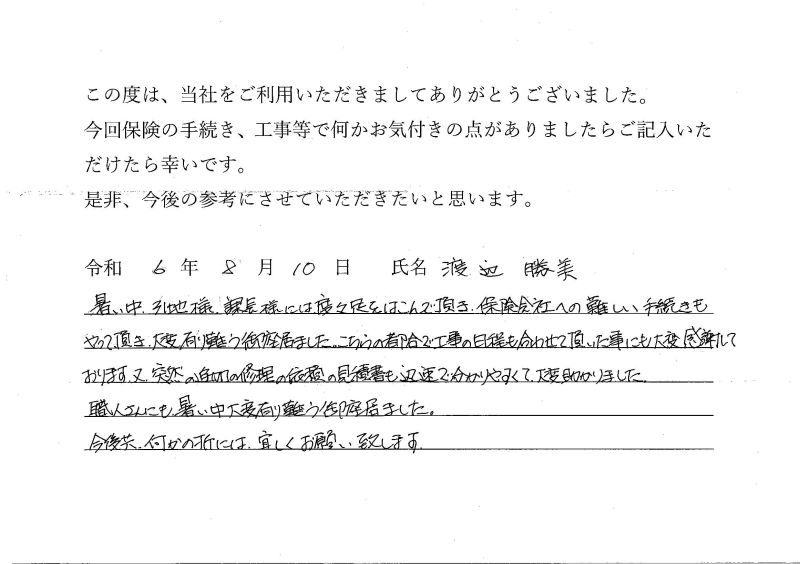 この度は、当社をご利用いただきましてありがとうございました。
今回保険の手続き、工事等で何かお気付きの点がありましたらご記入いた
だけたら幸いです。
是非、今後の参考にさせていただきたいと思います。
令和 6 年 8 月 10 日 氏名 渡辺 勝美
暑い中、引地様、課長様には度々足をはこんで頂き、保険会社への難しい手続きも
やって頂き、大変有り難う御座居ました。こちらの都合で工事の日程も合わせて頂いた事にも大変感謝して
おります。又、突然の の修理の依頼の見積書も迅速で分かりやすくて、大変助かりました。
職人さんにも暑い中大変有り難う御座居ました。
今後共、何かの折には、宜しくお願い致します。